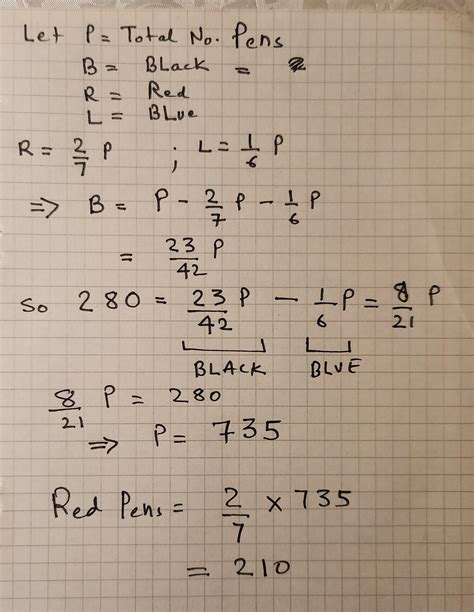 Let P = Total No. Pens
B = Black =
R = Red
L = Blue
R = 2/7 P ; L = 1/6 P
⇒ B = P - 2/7 P - 1/6 P
= 23/42 P
So 280 = 23/42 P - 1/6 P = 8/21 P
BLACK BLUE
8/21 P = 280
⇒ P = 735
Red Pens = 2/7 × 735
= 210